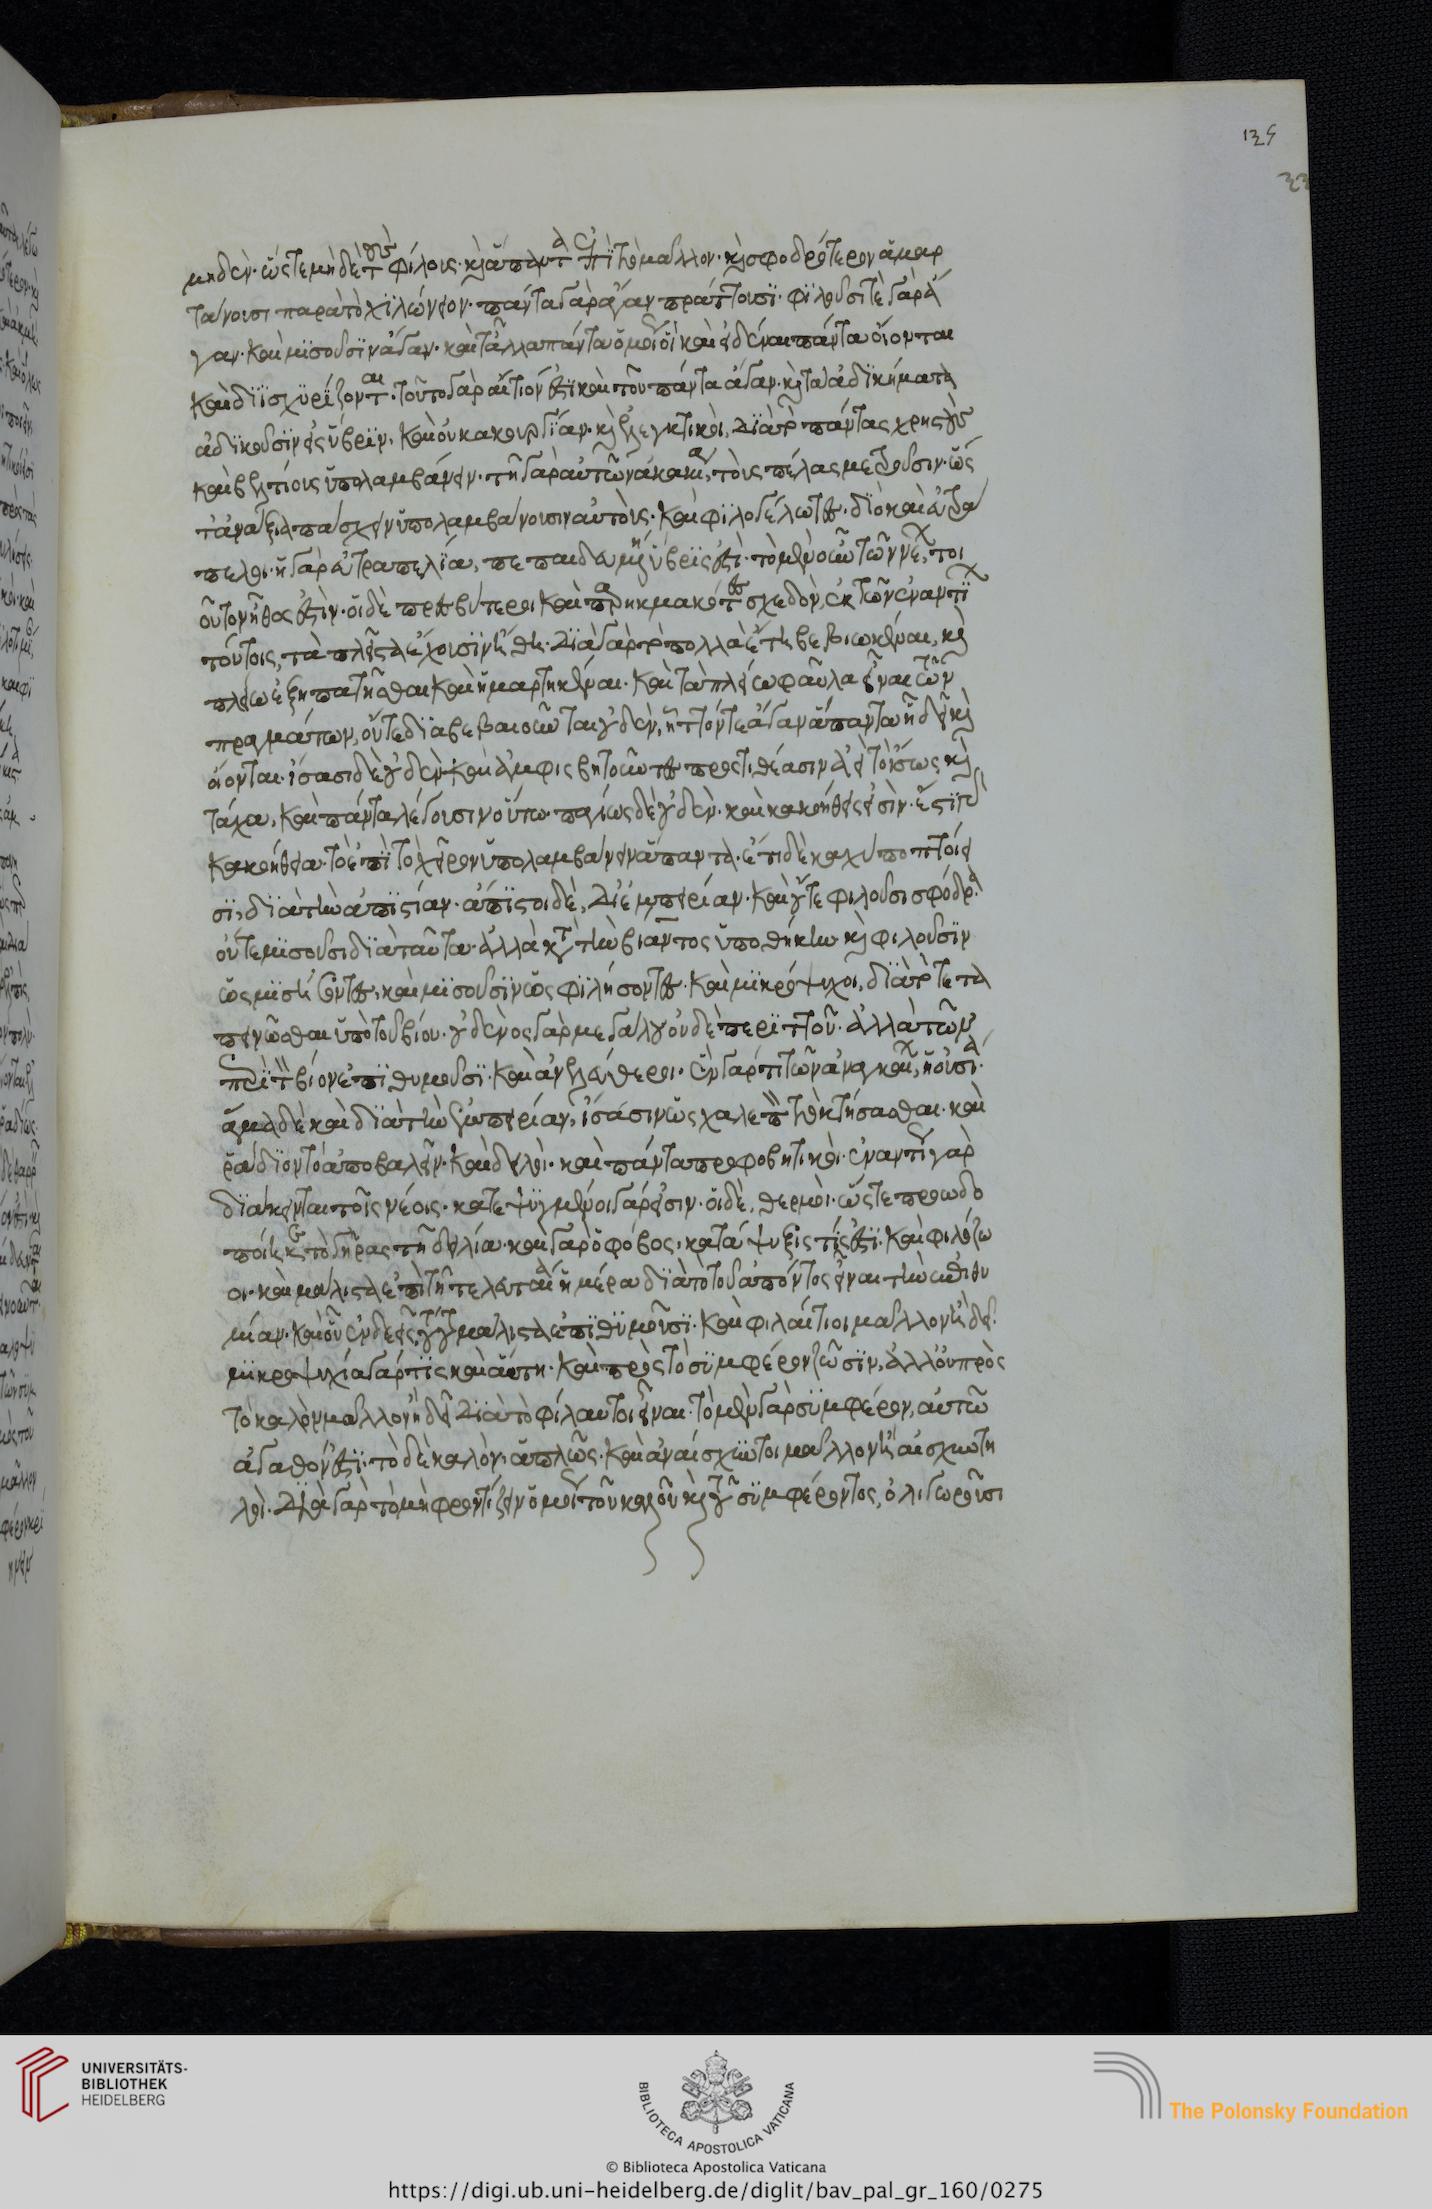 135
μηδέν· ὥστε μηδὲ τοὺς φίλους· καὶ ἅπαντα ἐπὶ τὸ μᾶλλον· καὶ σφοδρότερον ἁμαρ
τάνουσι παρὰ τὸ χιλώνειον· πάντα γὰρ ἄγαν πράττουσι· φιλοῦσί τε γὰρ ἄ
γαν· καὶ μισοῦσιν ἄγαν· καὶ τἆλλα πάντα ὁμοίως· καὶ εἰδέναι πάντα οἴονται
καὶ διϊσχυρίζονται· τοῦτο γὰρ αἴτιόν ἐστι καὶ τοῦ πάντα ἄγαν· καὶ τὰ ἀδικήματα
ἀδικοῦσιν εἰς ὕβριν, καὶ οὐ κακουργίαν· καὶ ἐλεητικοί, διὰ τὸ πάντας χρηστοὺς
καὶ βελτίους ὑπολαμβάνειν· τῇ γὰρ αὑτῶν ἀκακίᾳ, τοὺς πέλας μετροῦσιν· ὥστε
ἀνάξια πάσχειν ὑπολαμβάνουσιν αὐτούς· καὶ φιλογέλωτες· διὸ καὶ εὐτρά
πελοι· ἡ γὰρ εὐτραπελία, πεπαιδευμένη ὕβρις ἐστί· τὸ μὲν οὖν τῶν νέων, τοι
οῦτον ἦθος ἐστίν· οἱ δὲ πρεσβύτεροι καὶ παρηκμακότες σχεδὸν, ἐκ τῶν ἐναντίων
τούτοις, τὰ πλεῖστα ἔχουσιν ἤθη· διὰ γὰρ τὸ πολλὰ ἔτη βεβιωκέναι, καὶ
πλείω ἐξηπατῆσθαι καὶ ἡμαρτηκέναι· καὶ τὰ πλείω φαῦλα εἶναι τῶν
πραγμάτων, οὔτε διαβεβαιοῦνται οὐδέν, ἧττόν τε ἄγαν ἅπαντα ἢ δεῖ· καὶ
οἴονται· ἴσασι δὲ οὐδέν· καὶ ἀμφισβητοῦντες προστιθέασιν ἀεὶ τὸ ἴσως καὶ
τάχα, καὶ πάντα λέγουσιν οὕτω· παγίως δὲ οὐδέν· καὶ κακοήθεις εἰσίν· ἔστι γὰρ
κακοήθεια· τὸ ἐπὶ τὸ χεῖρον ὑπολαμβάνειν ἅπαντα· ἔτι δὲ καχύποπτοί εἰ
σι, διὰ τὴν ἀπιστίαν· ἄπιστοι δὲ, δι' ἐμπειρίαν· καὶ οὔτε φιλοῦσι σφόδρα
οὔτε μισοῦσι διὰ ταῦτα· ἀλλὰ κατὰ τὴν βίαντος ὑποθήκην· καὶ φιλοῦσιν
ὡς μισήσοντες, καὶ μισοῦσιν ὡς φιλήσοντες· καὶ μικρόψυχοι, διὰ τὸ τετα
πεινῶσθαι ὑπὸ τοῦ βίου· οὐδενὸς γὰρ μεγάλου οὐδὲ περιττοῦ· ἀλλὰ τῶν
πρὸς τὸν βίον ἐπιθυμοῦσι· καὶ ἀνελεύθεροι· ἓν γάρ τι τῶν ἀναγκαίων, ἡ οὐσία·
ἅμα δὲ καὶ διὰ τὴν ἐμπειρίαν, ἴσασιν ὡς χαλεπὸν τὸ κτήσασθαι· καὶ
ῥᾴδιον τὸ ἀποβαλεῖν· καὶ δειλοί· καὶ πάντα προφοβητικοί· ἐναντίως γὰρ
διάκεινται τοῖς νέοις· κατεψυγμένοι γάρ εἰσιν· οἱ δὲ, θερμοί· ὥστε προωδο
ποίηκε τὸ γῆρας τῇ δειλίᾳ· καὶ γὰρ ὁ φόβος, κατάψυξις τίς ἐστι· καὶ φιλόζω
οι· καὶ μάλιστα ἐπὶ τῇ τελευταίᾳ ἡμέρᾳ διὰ τὸ τοῦ ἀπόντος εἶναι τὴν ἐπιθυ
μίαν· καὶ οὗ ἐνδεεῖς, τούτου μάλιστα ἐπιθυμοῦσι· καὶ φιλαίτιοι μᾶλλον ἢ δεῖ·
μικροψυχία γάρ τις καὶ αὕτη· καὶ πρὸς τὸ συμφέρον ζῶσιν, ἀλλ' οὐ πρὸς
τὸ καλὸν μᾶλλον ἢ δεῖ διὰ τὸ φίλαυτοι εἶναι· τὸ μὲν γὰρ συμφέρον, αὐτῷ
ἀγαθόν ἐστι· τὸ δὲ καλὸν, ἁπλῶς· καὶ ἀναίσχυντοι μᾶλλον ἢ αἰσχυντη
λοί· διὰ γὰρ τὸ μὴ φροντίζειν ὁμοίως τοῦ καλοῦ καὶ τοῦ συμφέροντος, ὀλιγωροῦσι
UNIVERSITÄTS-
BIBLIOTHEK
HEIDELBERG
BIBLIOTECA APOSTOLICA VATICANA
The Polonsky Foundation
© Biblioteca Apostolica Vaticana
https://digi.ub.uni-heidelberg.de/diglit/bav_pal_gr_160/0275